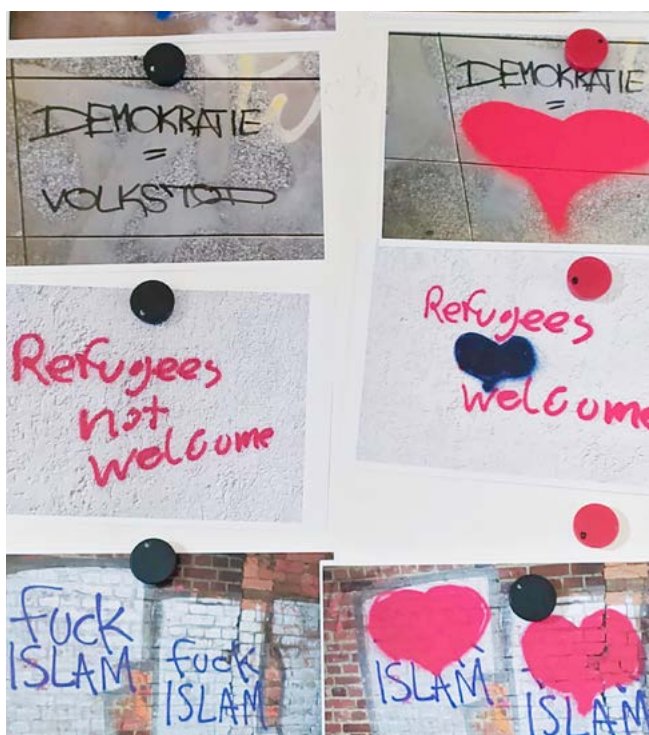 DEMOKRATIE
=
VOLKSTOD
DEMOKRATIE
=
Refugees
not
welcome
Refugees
welcome
fuck
ISLAM
fuck
ISLAM
ISLAM
ISLAM